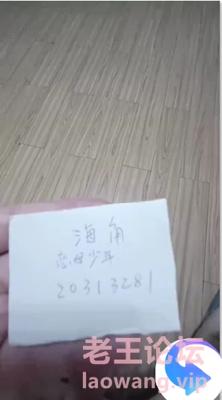 海角
恋母少年
20313281
老王论坛
laowang.vip